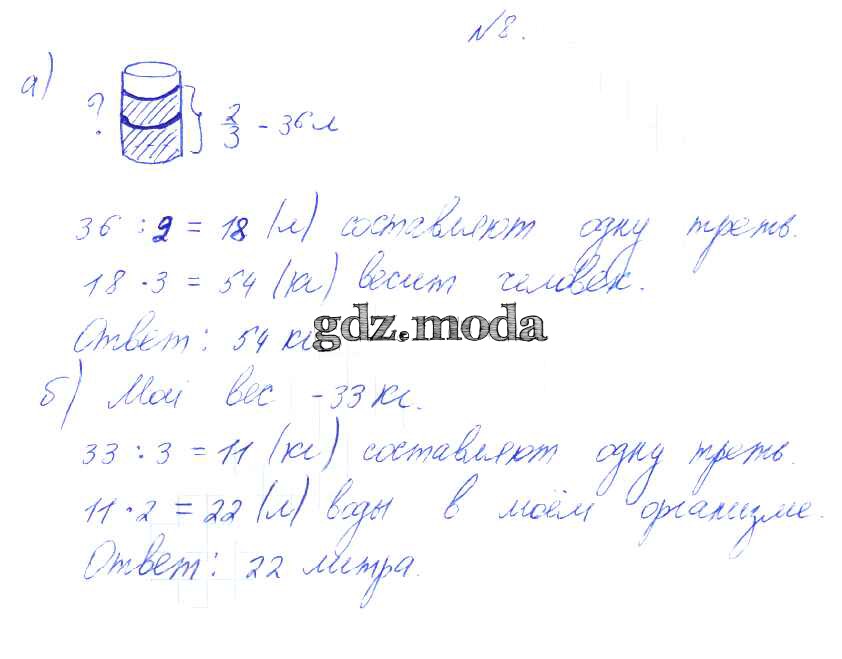 №8.
а)
? 2/3 - 36 л
36 : 2 = 18 (л) составляют одну треть.
18 · 3 = 54 (кг) весит человек.
gdz.moda
Ответ: 54 кг
б) Мой вес - 33 кг.
33 : 3 = 11 (кг) составляют одну треть.
11 · 2 = 22 (л) воды в моём организме.
Ответ: 22 литра.